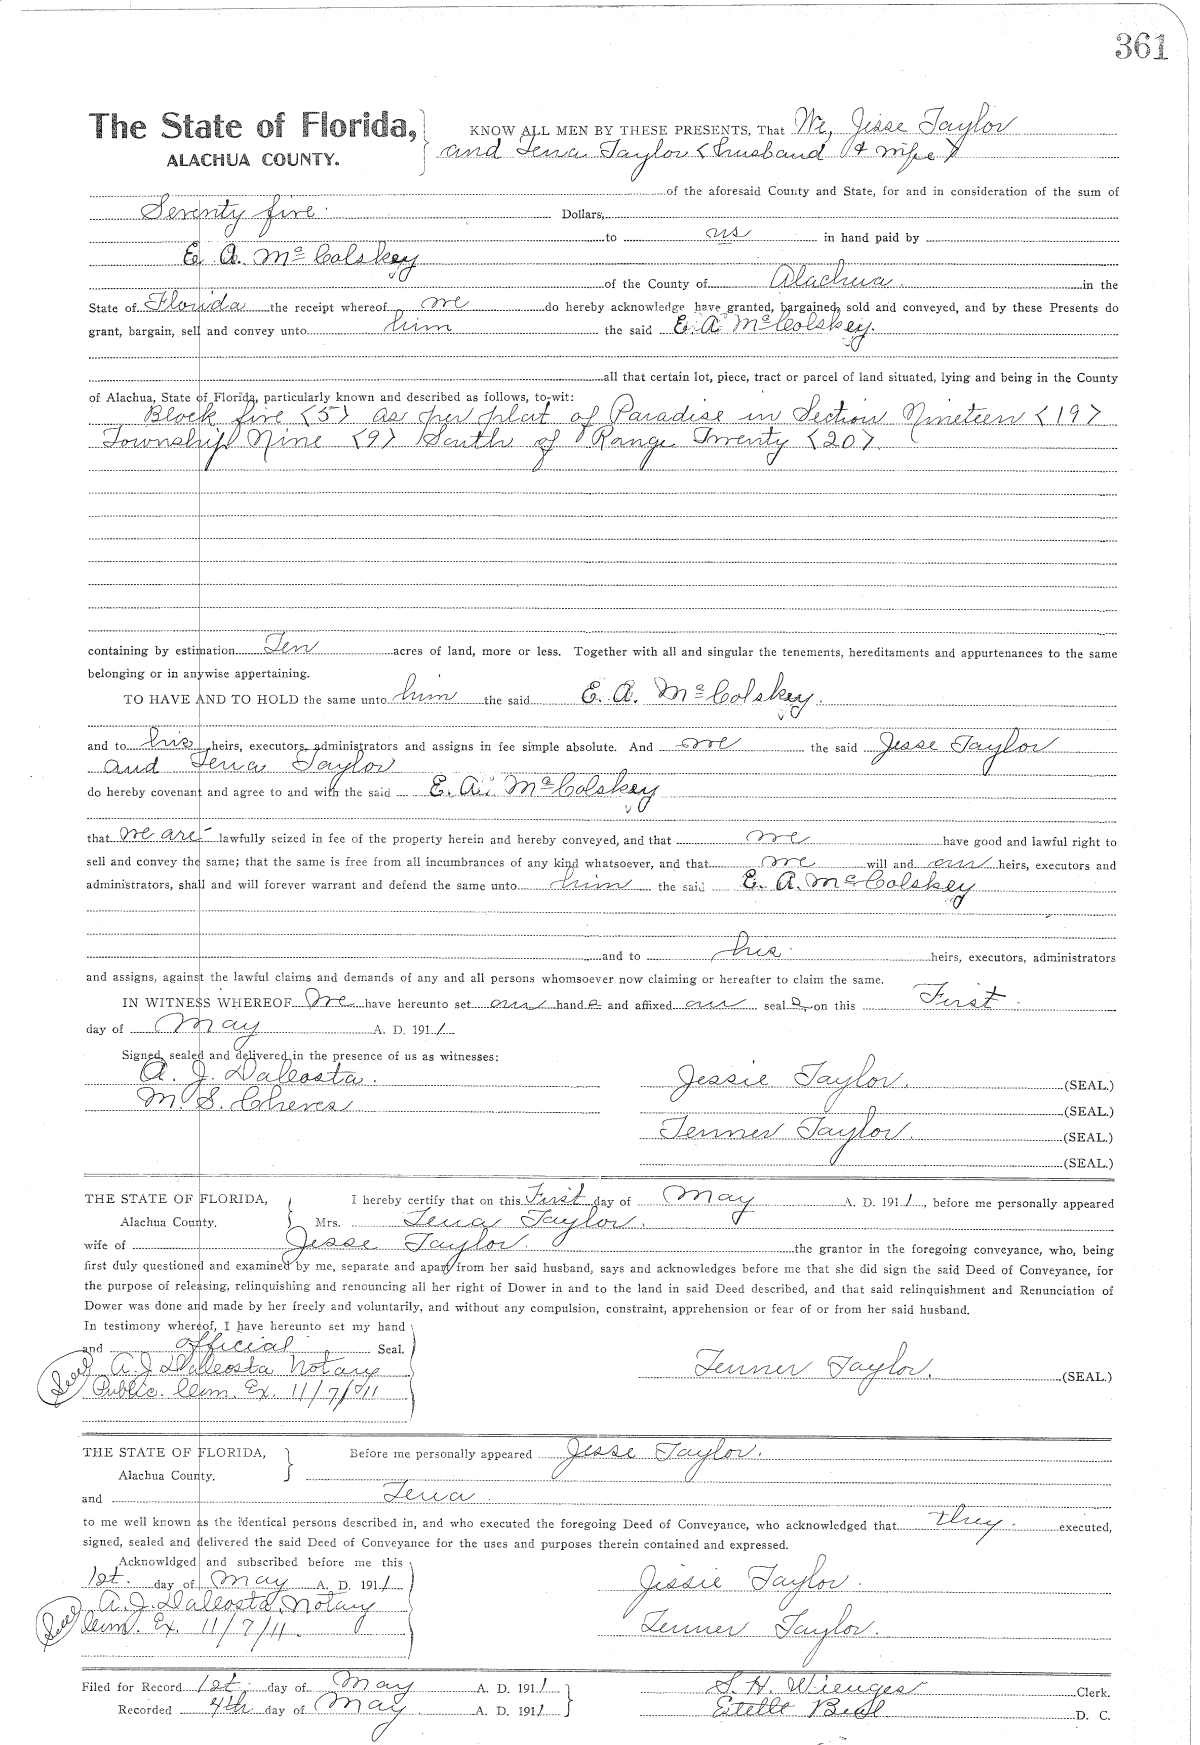 361
The State of Florida, KNOW ALL MEN BY THESE PRESENTS, That We, Jesse Taylor
ALACHUA COUNTY. and Tena Taylor (husband & wife)
of the aforesaid County and State, for and in consideration of the sum of
Seventy five Dollars,
to us in hand paid by
E. A. McColskey
of the County of Alachua in the
State of Florida the receipt whereof we do hereby acknowledge have granted, bargained, sold and conveyed, and by these Presents do
grant, bargain, sell and convey unto him the said E. A. McColskey.
all that certain lot, piece, tract or parcel of land situated, lying and being in the County
of Alachua, State of Florida, particularly known and described as follows, to-wit:
Block five (5) as per plat of Paradise in Section Nineteen (19)
Township Nine (9) South of Range Twenty (20)
containing by estimation Ten acres of land, more or less. Together with all and singular the tenements, hereditaments and appurtenances to the same
belonging or in anywise appertaining.
TO HAVE AND TO HOLD the same unto him the said E. A. McColskey.
and to his heirs, executors, administrators and assigns in fee simple absolute. And we the said Jesse Taylor
and Tena Taylor
do hereby covenant and agree to and with the said E. A. McColskey
that we are lawfully seized in fee of the property herein and hereby conveyed, and that we have good and lawful right to
sell and convey the same; that the same is free from all incumbrances of any kind whatsoever, and that we will and our heirs, executors and
administrators, shall and will forever warrant and defend the same unto him the said E. A. McColskey
and to his heirs, executors, administrators
and assigns, against the lawful claims and demands of any and all persons whomsoever now claiming or hereafter to claim the same.
IN WITNESS WHEREOF We have hereunto set our hands and affixed our seals on this First
day of May A. D. 1911
Signed, sealed and delivered in the presence of us as witnesses:
A. J. Dacosta. Jessie Taylor. (SEAL.)
M. S. Cheves (SEAL.)
Tenner Taylor. (SEAL.)
(SEAL.)
THE STATE OF FLORIDA, I hereby certify that on this First day of May A. D. 1911, before me personally appeared
Alachua County. Mrs. Tena Taylor.
wife of Jesse Taylor. the grantor in the foregoing conveyance, who, being
first duly questioned and examined by me, separate and apart from her said husband, says and acknowledges before me that she did sign the said Deed of Conveyance, for
the purpose of releasing, relinquishing and renouncing all her right of Dower in and to the land in said Deed described, and that said relinquishment and Renunciation of
Dower was done and made by her freely and voluntarily, and without any compulsion, constraint, apprehension or fear of or from her said husband.
In testimony whereof, I have hereunto set my hand
and official Seal.
Seal A. J. Dacosta Notary Tenner Taylor. (SEAL.)
Public. Com. Ex. 11/7/11
THE STATE OF FLORIDA, Before me personally appeared Jesse Taylor.
Alachua County.
and Tena
to me well known as the identical persons described in, and who executed the foregoing Deed of Conveyance, who acknowledged that they executed,
signed, sealed and delivered the said Deed of Conveyance for the uses and purposes therein contained and expressed.
Acknowldged and subscribed before me this
1st. day of May A. D. 1911 Jissie Taylor.
Seal A. J. Dacosta, Notary
Com. Ex. 11/7/11. Tenner Taylor.
Filed for Record 1st day of May A. D. 1911 S. H. Wienges Clerk.
Recorded 4th day of May A. D. 1911 Estelle Beal D. C.